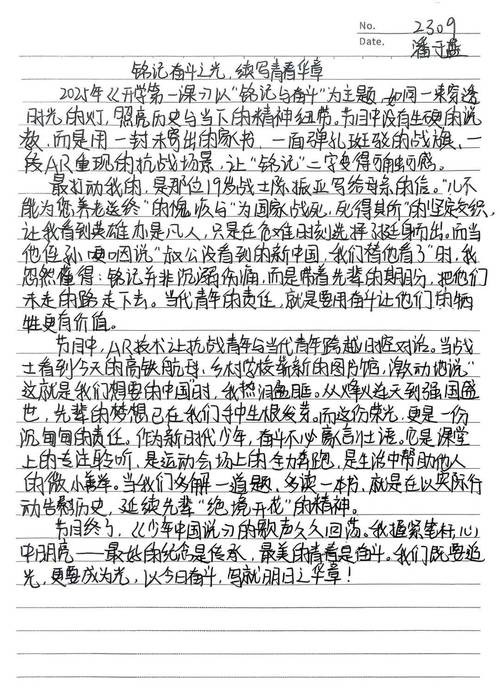 No. 2309
Date. 潘于燕
铭记奋斗之光，续写青春华章
2025年《开学第一课》以“铭记与奋斗”为主题，如同一束穿透
时光的灯，照亮历史与当下的精神纽带。节目中没有生硬的说
教，而是用一封未寄出的家书，一面弹孔斑驳的战旗，一
段AR重现的抗战场景，让“铭记”二字变得可触可感。
最打动我的，是那位19岁战士陈振亚写给母亲的信。“儿不
能为您养老送终”的愧疚与“为国家战死，死得其所”的坚定交织，
让我看到英雄亦是凡人，只是在危难时刻选择了挺身而出。而当
他侄孙哽咽说“叔公没看到的新中国，我们替他看了”时，我
忽然懂得：铭记并非沉溺伤痛，而是带着先辈的期盼，把他们
未走的路走下去。当代青年的责任，就是要用奋斗让他们的牺
牲更有价值。
节目中，AR技术让抗战青年与当代青年跨越时空对话。当战
士看到今天的高铁航母，乡村学校崭新的图书馆，激动地说“
这就是我们想要的中国”时，我热泪盈眶。从烽火连天到强国盛
世，先辈的梦想已在我们手中生根发芽。而这份荣光，更是一份
沉甸甸的责任。作为新时代少年，奋斗不必豪言壮语。它是课堂
上的专注聆听，是运动会场上的全力奔跑，是生活中帮助他人
的微小善举。当我们多解一道题，多读一本书，就是在以实际行
动告慰历史，延续先辈“绝境开花”的精神。
节目终了，《少年中国说》的歌声久久回荡。我握紧笔杆，心
中明亮——最好的纪念是传承，最美的青春是奋斗。我们既要追
光，更要成为光，以今日奋斗，写就明日之华章！